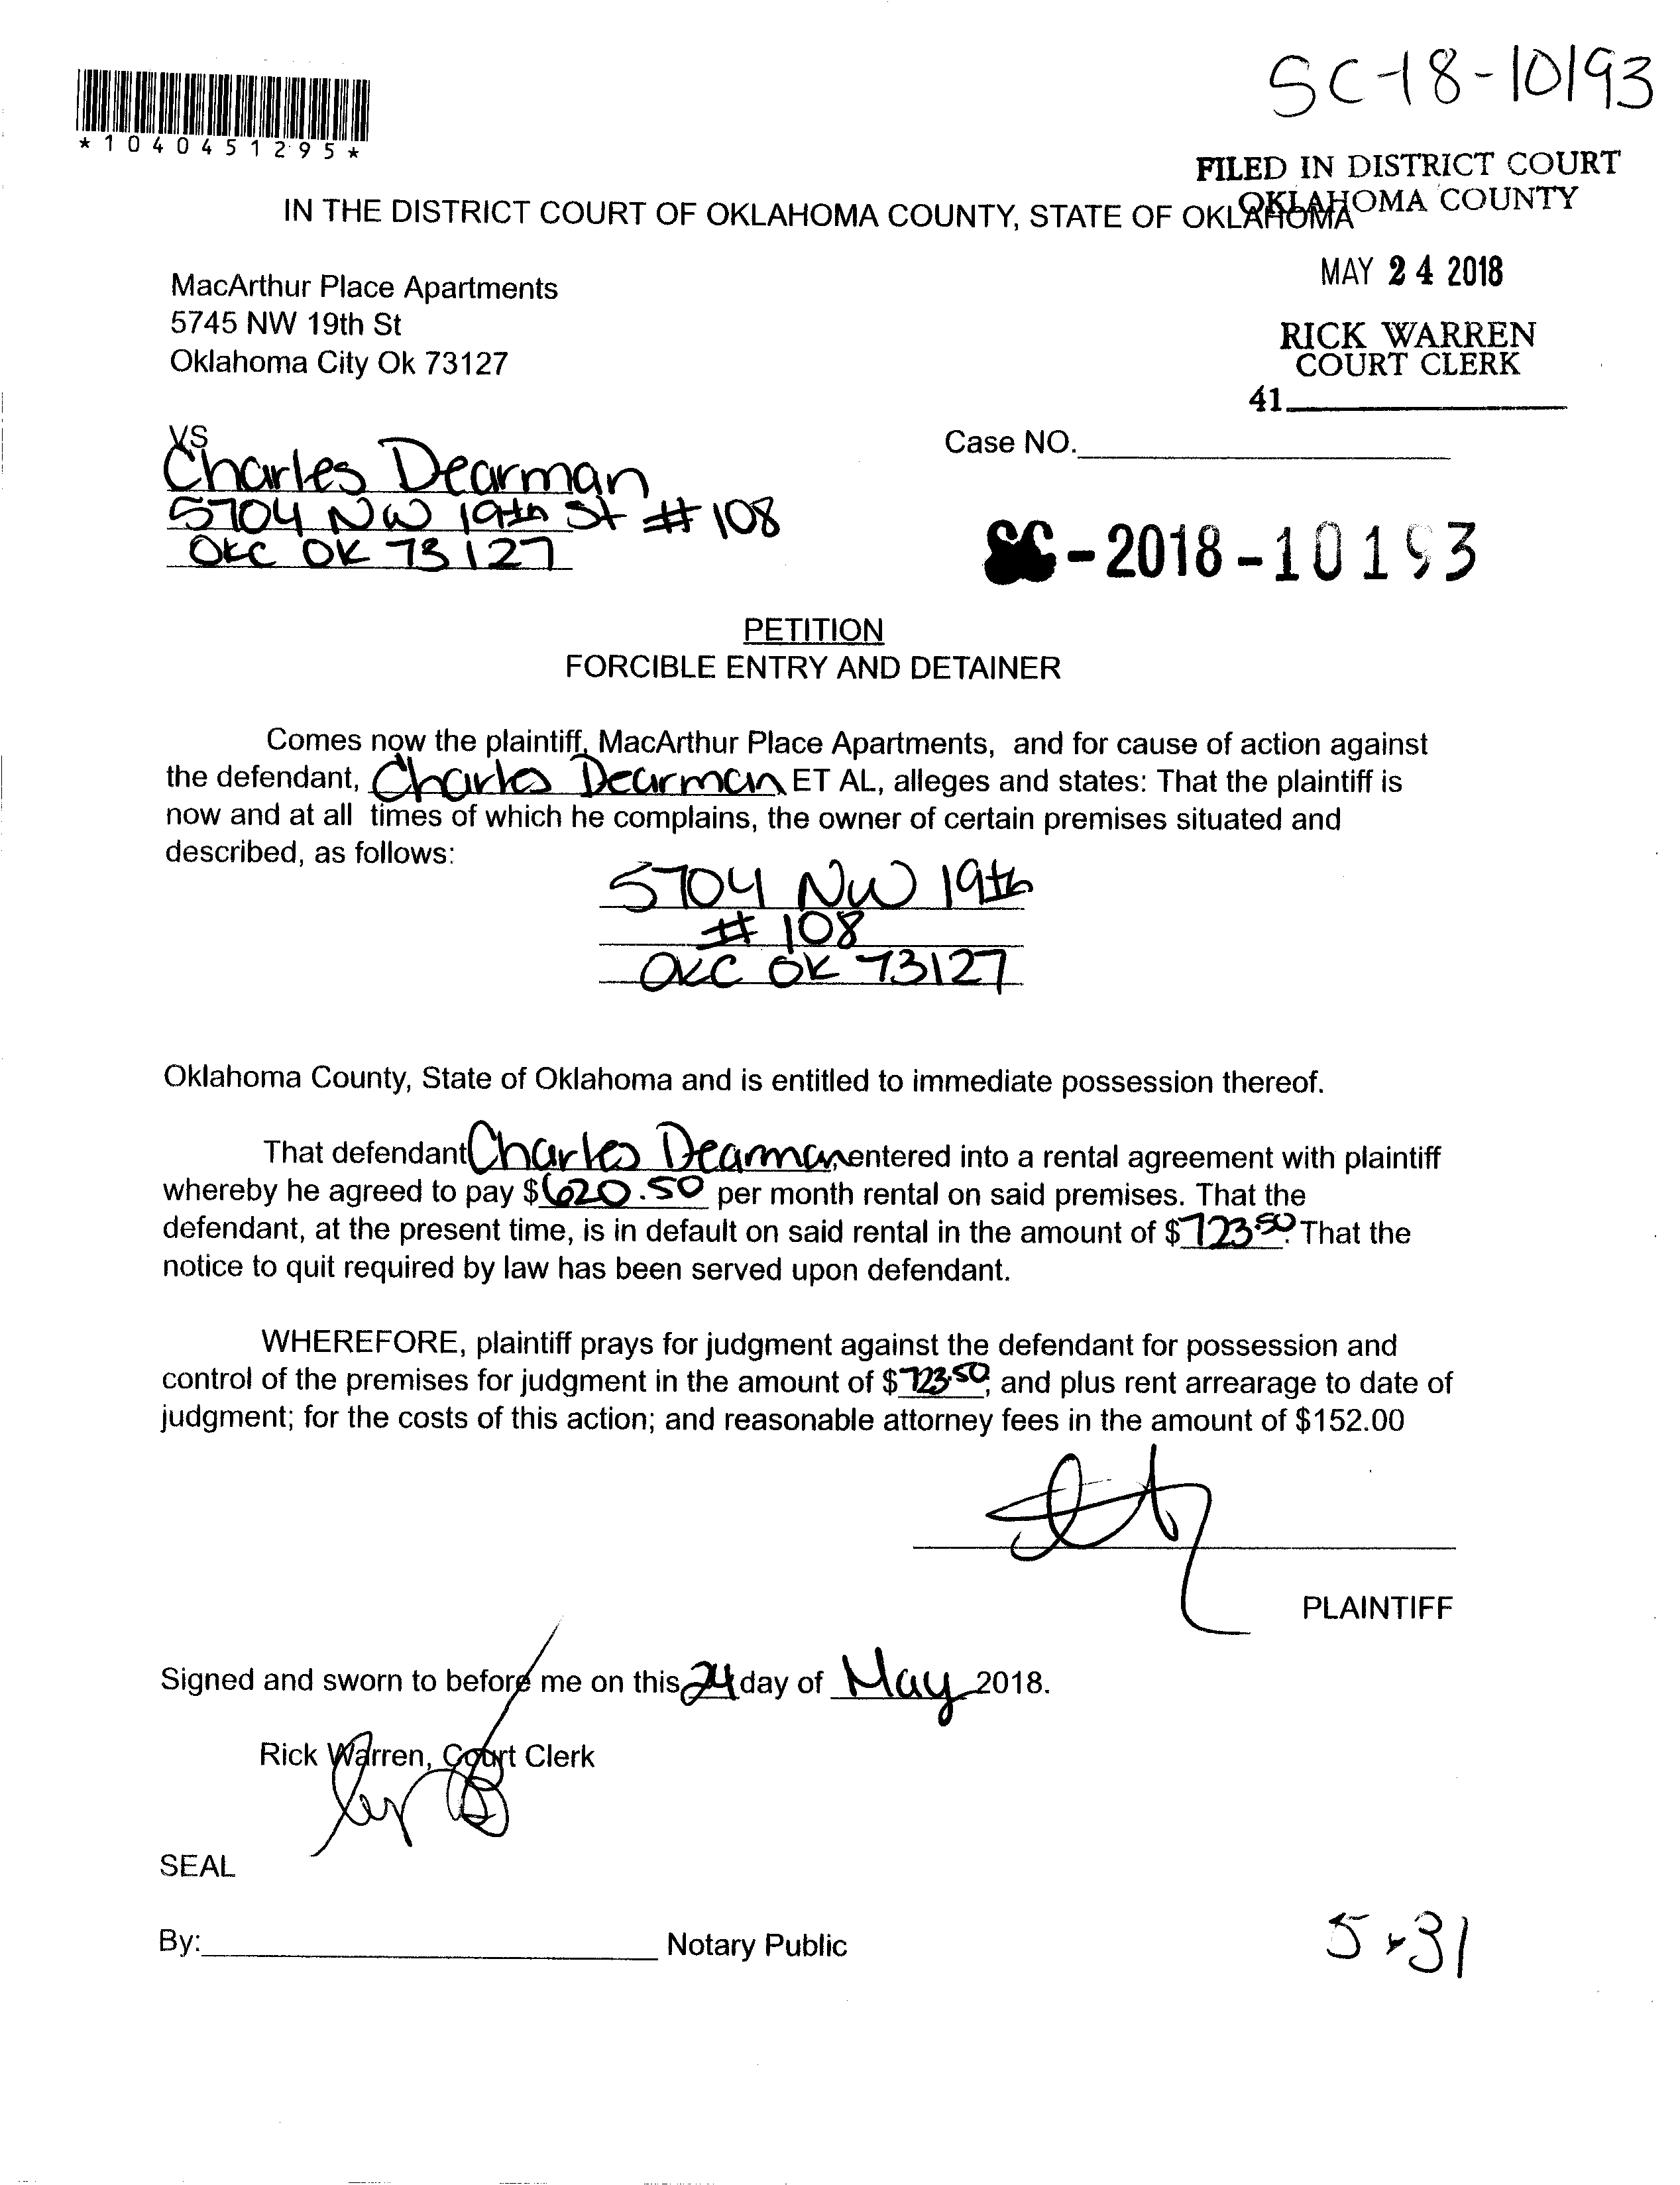 SC-18-10193
*1040451295*
FILED IN DISTRICT COURT
OKLAHOMA COUNTY
IN THE DISTRICT COURT OF OKLAHOMA COUNTY, STATE OF OKLAHOMA
MAY 24 2018
MacArthur Place Apartments
5745 NW 19th St
Oklahoma City Ok 73127
RICK WARREN
COURT CLERK
41
VS
Case NO.
Charles Dearman
5704 NW 19th St # 108
OKC OK 73127
SC-2018-10193
PETITION
FORCIBLE ENTRY AND DETAINER
Comes now the plaintiff, MacArthur Place Apartments, and for cause of action against
the defendant, Charles Dearman ET AL, alleges and states: That the plaintiff is
now and at all times of which he complains, the owner of certain premises situated and
described, as follows:
5704 NW 19th
# 108
OKC OK 73127
Oklahoma County, State of Oklahoma and is entitled to immediate possession thereof.
That defendant Charles Dearman, entered into a rental agreement with plaintiff
whereby he agreed to pay $620.50 per month rental on said premises. That the
defendant, at the present time, is in default on said rental in the amount of $723.50. That the
notice to quit required by law has been served upon defendant.
WHEREFORE, plaintiff prays for judgment against the defendant for possession and
control of the premises for judgment in the amount of $723.50, and plus rent arrearage to date of
judgment; for the costs of this action; and reasonable attorney fees in the amount of $152.00
PLAINTIFF
Signed and sworn to before me on this 24 day of May 2018.
Rick Warren, Court Clerk
SEAL
By: Notary Public
5-31